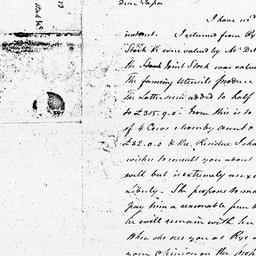 Dear Papa
I have rec^d
instant. I returned from Rye
Stock &c were valued by Mr De
the Stock Joint Stock was value
The farming Utensils produce
The Latter sum added to half
to £315.9.0. From this is to
of 4 Cows &
£42.0.0 & the Residue I sha
wishes to consult you about
well but is extremely
Liberty. She proposes to
pay him a reasonable sum
he will remain with her
When she sees you at Rye
your opinion on the